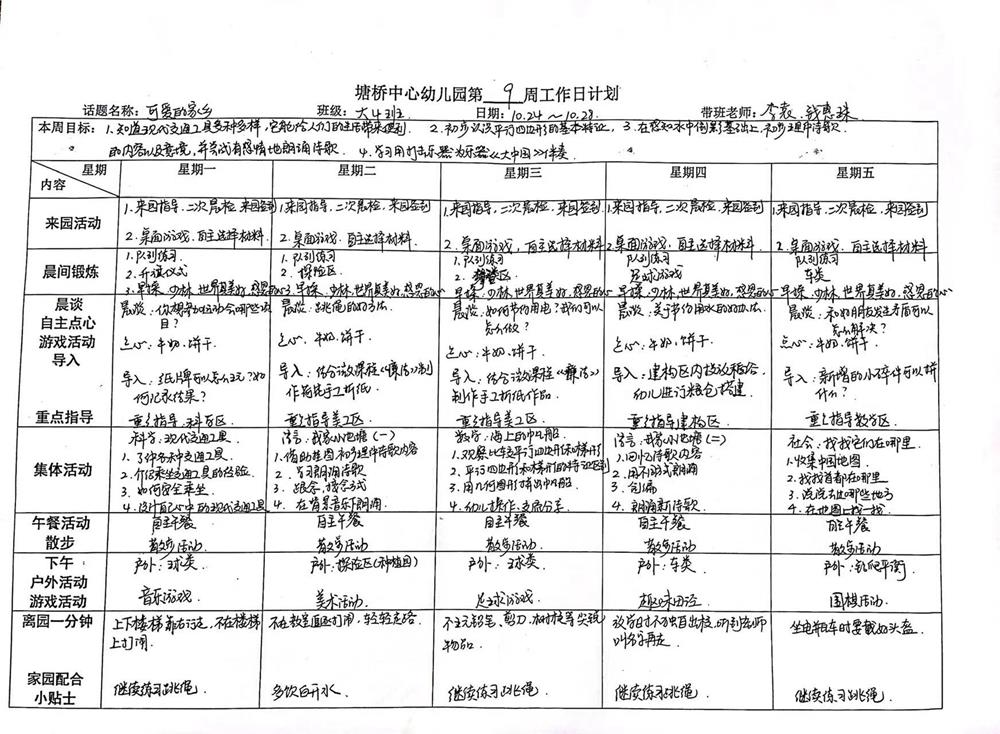 塘桥中心幼儿园第 9 周工作日计划
话题名称：可爱的家乡 班级：大4班 日期：10.24～10.28 带班老师：李袁、钱惠珠
本周目标：1.知道现代交通工具多种多样，它能给人们的生活带来便利. 2.初步认识平行四边形的基本特征. 3.在感知水中倒影基础上,初步理解诗歌
的内容以及意境,并尝试有感情地朗诵诗歌. 4.学习用打击乐器为乐器《大中国》伴奏.
星期 内容 星期一 星期二 星期三 星期四 星期五
来园活动
1.来园指导,二次晨检,来园签到 1.来园指导,二次晨检,来园签到 1.来园指导,二次晨检,来园签到 1.来园指导,二次晨检,来园签到 1.来园指导,二次晨检,来园签到
2.桌面游戏,自主选择材料. 2.桌面游戏,自主选择材料. 2.桌面游戏,自主选择材料 2.桌面游戏,自主选择材料. 2.桌面游戏,自主选择材料
晨间锻炼
1.队列练习 1.队列练习 1.队列练习 队列练习 队列练习
2.升旗仪式 2.探险区. 2. 区 足球游戏 车类
3.早操:少林、世界真美好、感恩的心 3.早操:少林、世界真美好、感恩的心 早操:少林、世界真美好、感恩的心 早操:少林、世界真美好、感恩的心 早操:少林、世界真美好、感恩的心
晨谈
自主点心
游戏活动
导入
重点指导
晨谈:你想参加运动会哪些项目?
点心:牛奶、饼干
导入:纸牌可以怎么玩?如何记录结果?
重点指导:科学区.
晨谈:跳绳的好方法.
点心:牛奶、饼干.
导入:结合微课程制作有关手工折纸.
重点指导美工区.
晨谈:如何节约用电?我们可以怎么做?
点心:牛奶、饼干.
导入:结合微课程制作手工折纸作品.
重点指导美工区.
晨谈:关于节约用水的好办法.
点心:牛奶、饼干.
导入:建构区内投放稻谷,幼儿进行粮仓搭建.
重点指导建构区.
晨谈:和好朋友发生矛盾可以怎么解决?
点心:牛奶、饼干.
导入:新增的小碎件可以拼什么?
重点指导数学区.
集体活动
科学:现代交通工具.
1.了解多种交通工具.
2.介绍乘坐交通工具的经验.
3.如何安全乘坐.
4.设计自己心中的现代交通工具
语言:我家小池塘(一)
1.借助挂图初步理解诗歌内容
2.学习朗诵诗歌
3.跟念、接念方式
4.在背景音乐下朗诵.
数学:海上的中几船.
1.观察比较平行四边形和梯形
2.平行四边形和梯形的特征区别
3.用几何图形拼出中几船.
4.幼儿操作、交流分享.
语言:我家小池塘(二)
1.回忆诗歌内容
2.用不同形式朗诵
3.创编
4.朗诵新诗歌.
社会:找找它们在哪里.
1.收集中国地图.
2.找找首都在哪里
3.说说去过哪些地方
4.在地图上找一找.
午餐活动 自主午餐 自主午餐 自主午餐 自主午餐 自主午餐
散步 散步活动. 散步活动 散步活动. 散步活动 散步活动.
下午 户外:玩球类. 户外:探险区(种植园) 户外:玩球类. 户外:车类. 户外:钻爬平衡.
户外活动
游戏活动 音乐游戏. 美术活动. 足球游戏. 趣味田径. 围棋活动.
离园一分钟
上下楼梯靠右行走,不在楼梯上打闹.
不在教室追逐打闹,轻轻走路.
不玩铅笔、剪刀、树枝等尖锐物品.
放学时不独自出校,听到老师叫名字再走.
坐电瓶车时要戴好头盔.
家园配合
小贴士 继续练习跳绳. 多饮白开水. 继续练习跳绳. 继续练习跳绳. 继续练习跳绳.